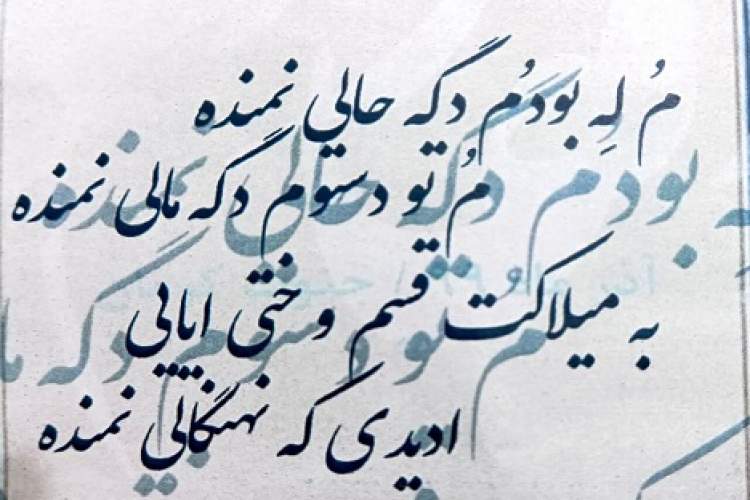 مُ لِه بودُم دگه حالی نمنده
مُ تو دستوم دگه مالی نمنده
به میلاکُت قسم وختی ایایی
ادیدی که نمنده